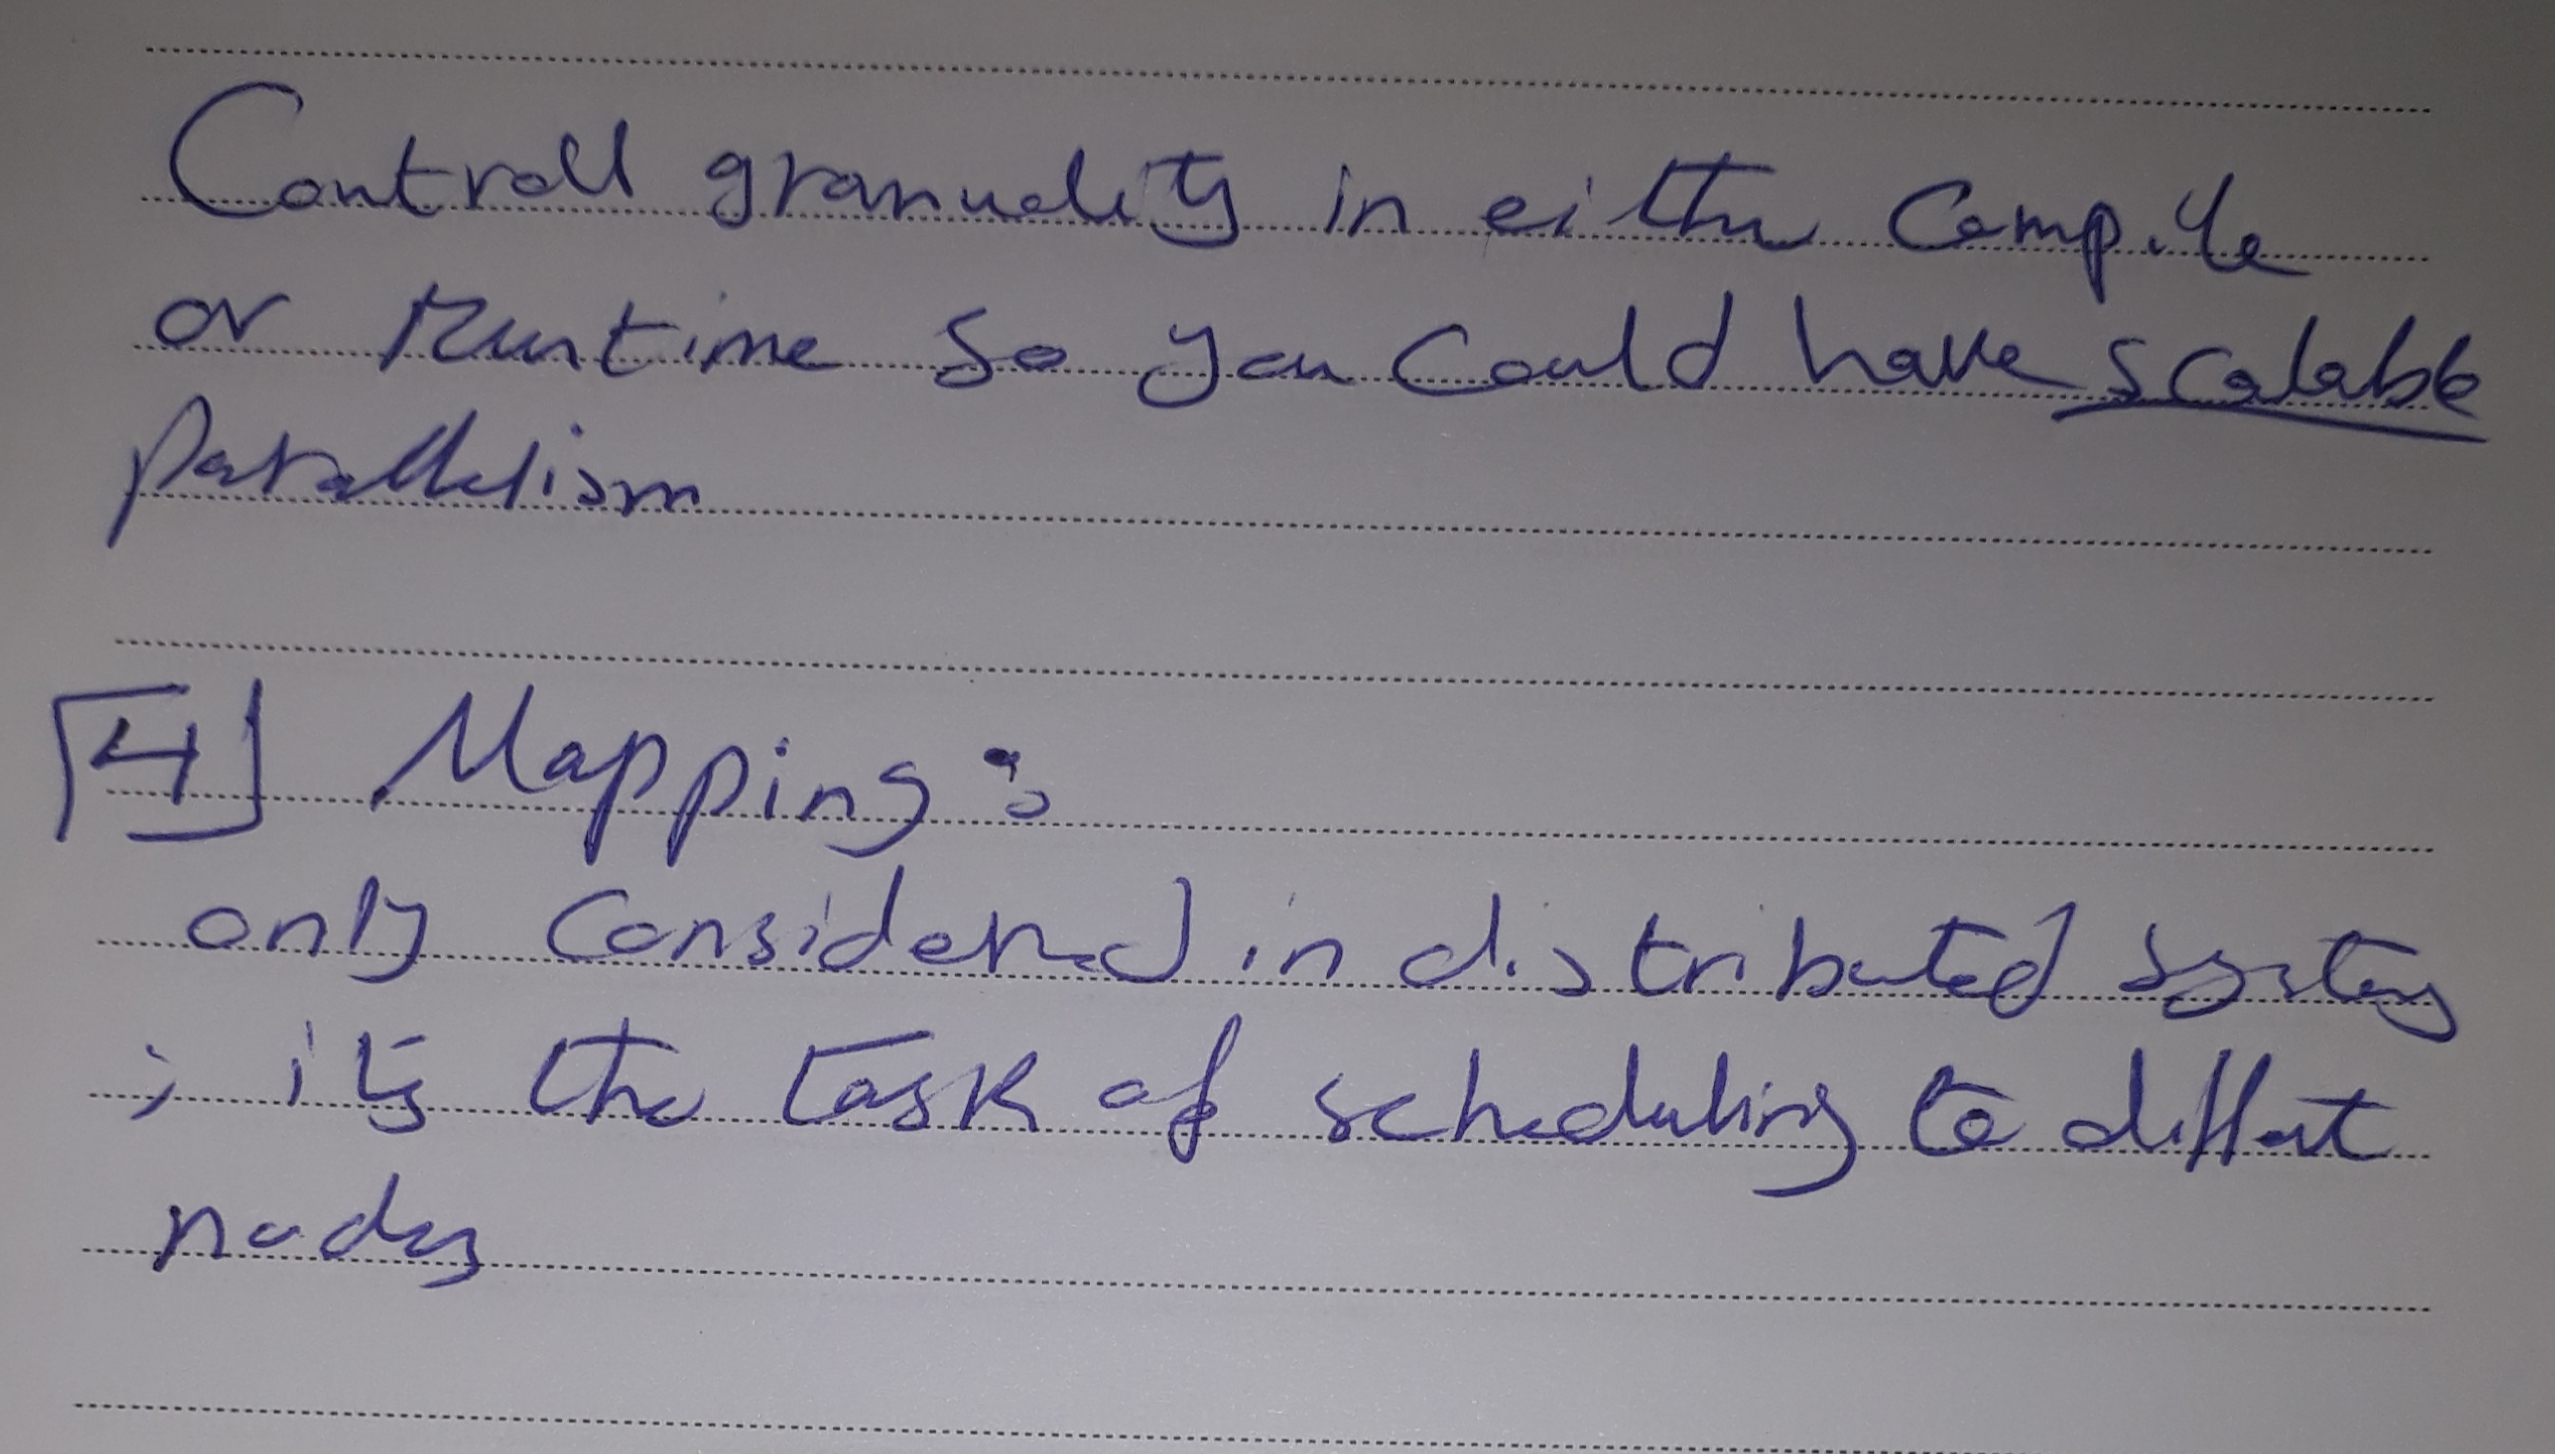 Controll granuality in either Compile
or Runtime So you Could have scalable
parallelism
[4] Mapping :
only Considered in distributed systems
; its the task of scheduling to diffent
nodes